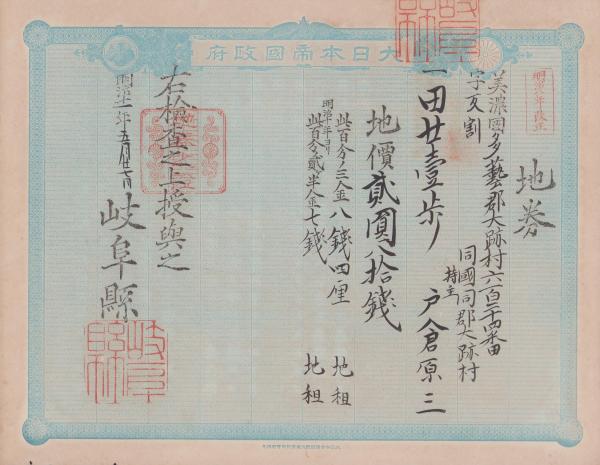 大日本帝國政府
明治年改正
地券
美濃國多藝郡大跡村六百二十四番田
字友割
同國同郡大跡村
持主 戸倉原三
一田廿壹歩
地價貳圓八拾錢
此百分ノ三金八錢四厘 地租
明治十年ヨリ
此百分ノ貳半金七錢 地租
右檢査之上授與之
明治十一年五月廿七日
岐阜縣
岐阜縣